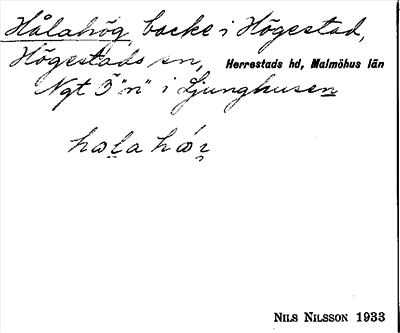 Hålahög backe i Högestad,
Högestads sn, Herrestads hd, Malmöhus län
Ngt Ö "n" i Ljunghusen
NILS NILSSON 1933